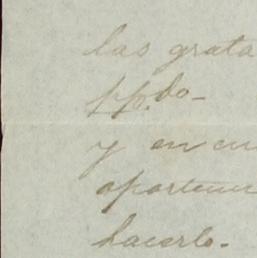 las grata
pp.do-
y en cu
oportuni
hacerlo.-